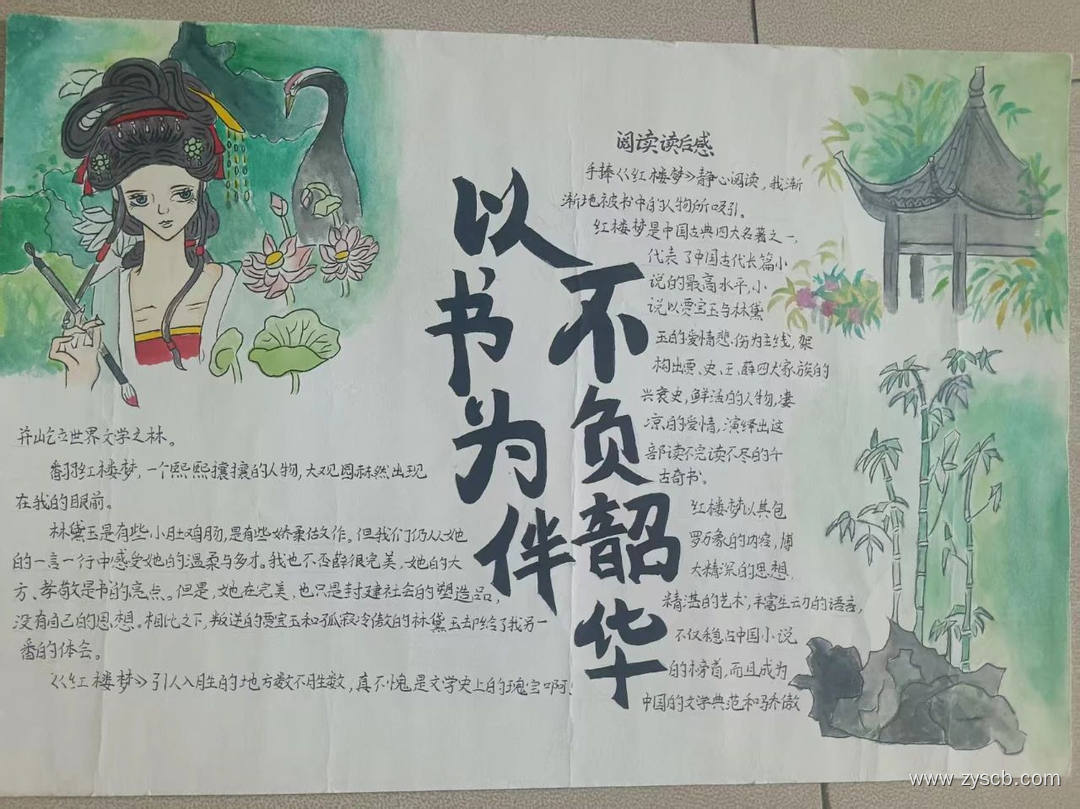 以书为伴
不负韶华
阅读读后感
手捧《红楼梦》静心阅读，我渐
渐地被书中的人物所吸引。
红楼梦是中国古典四大名著之一，
代表了中国古代长篇小
说的最高水平，小
说以贾宝玉与林黛
玉的爱情悲伤为主线，架
构出贾、史、王、薛四大家族的
兴衰史，鲜活的人物，凄
凉的爱情，演绎出这
部读不完读不尽的千
古奇书。
红楼梦以其包
罗万象的内容，博
大精深的思想，
精湛的艺术，丰富生动的语言，
不仅稳占中国小说
的榜首，而且成为
中国的文学典范和骄傲
并屹立世界文学之林。
翻开红楼梦，一个熙熙攘攘的人物，大观园赫然出现
在我的眼前。
林黛玉是有些小肚鸡肠，是有些娇柔做作，但我们仍从她
的一言一行中感受她的温柔与多才。我也不否薛很完美，她的大
方、孝敬是书的亮点。但是，她在完美，也只是封建社会的塑造品，
没有自己的思想。相比之下，叛逆的贾宝玉和孤寂冷傲的林黛玉却给了我另一
番的体会。
《红楼梦》引人入胜的地方数不胜数，真不愧是文学史上的瑰宝啊！
www.zyscb.com